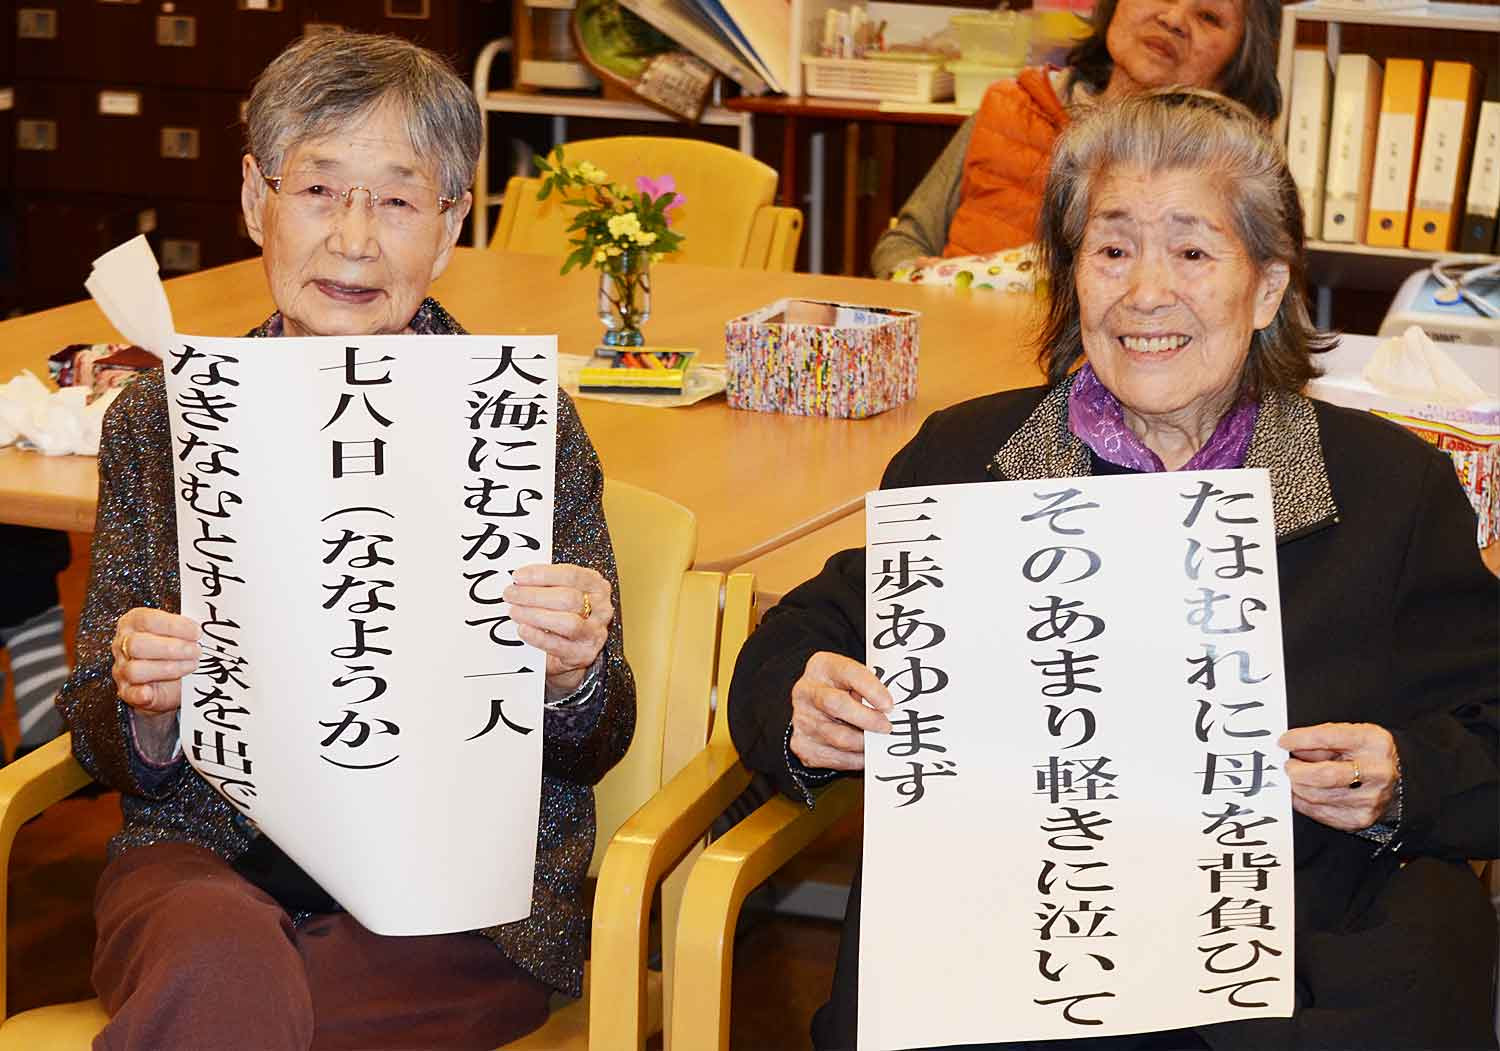 大海にむかひて一人
七八日（ななようか）
なきなむとすと家を出で
たはむれに母を背負ひて
そのあまり軽きに泣いて
三歩あゆまず